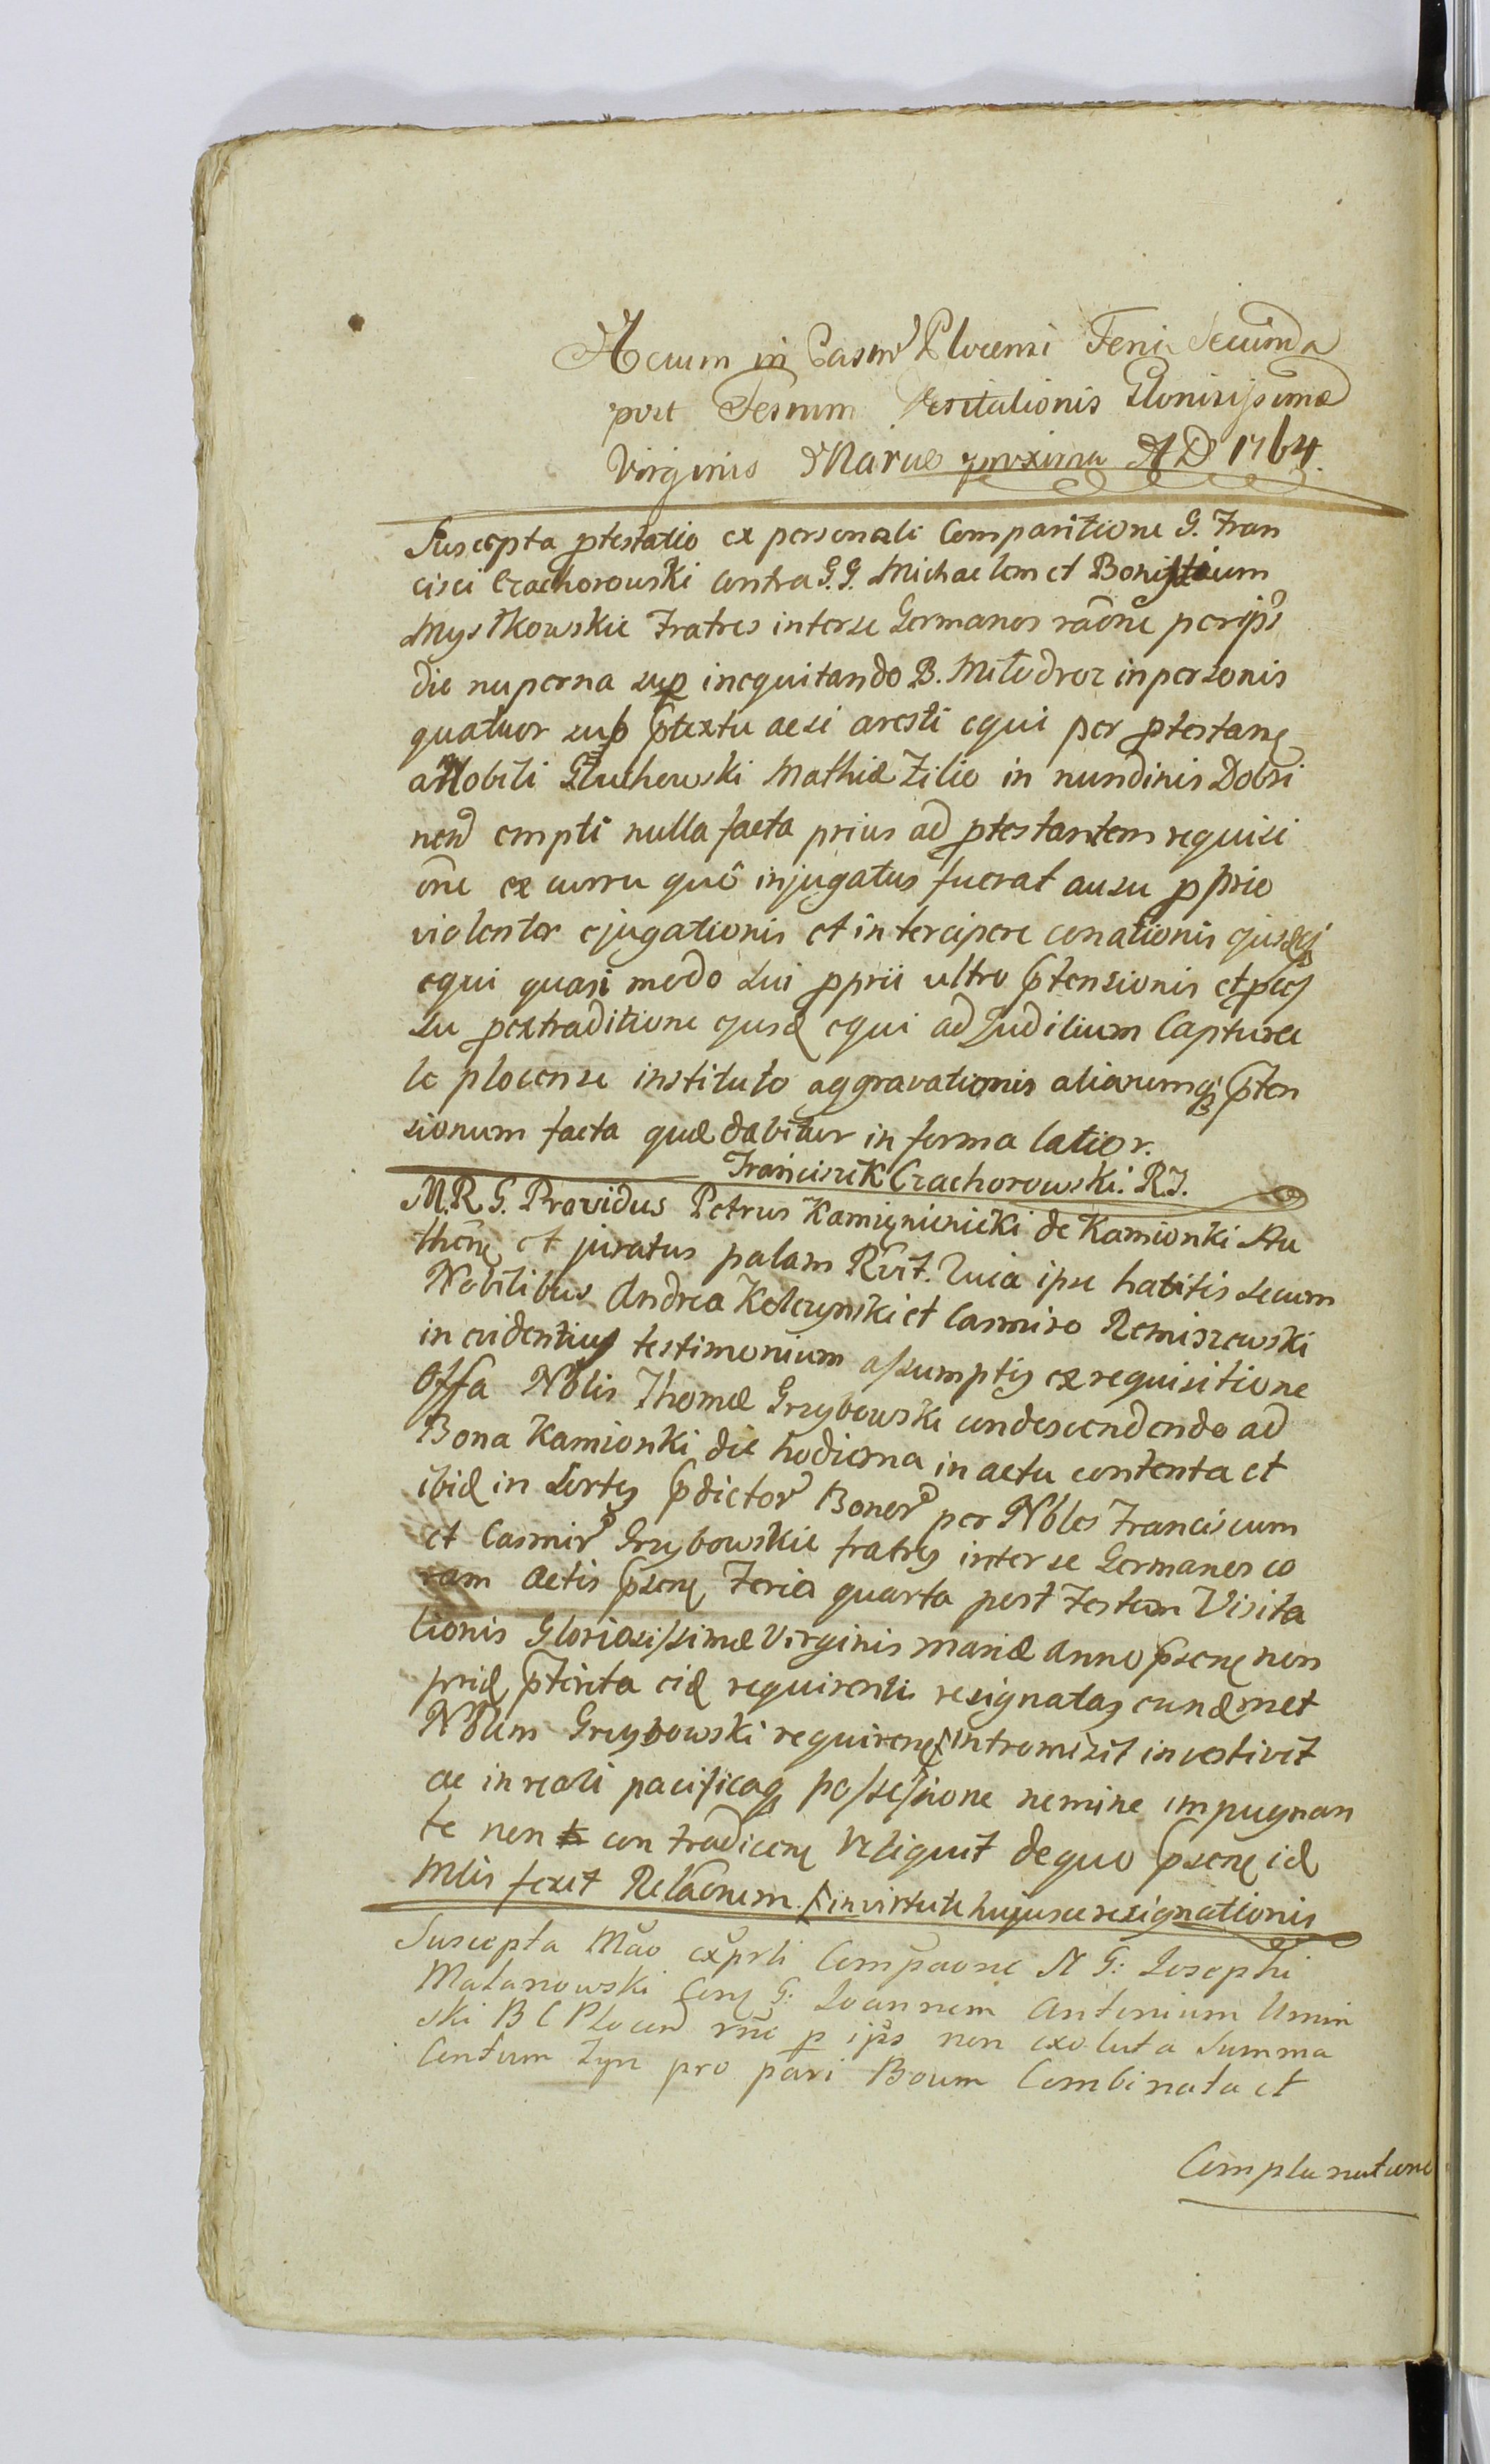 Actum in Castro Plocensi Feria Secunda
post Festum Visitationis Gloriosissimæ
Virginis Mariæ proxima A D 1764.
Suscepta ptestatio ex personali Comparitione G. Fran
cisci Czachorowski contra G. G. Michaelem et Bonifacium
Mystkowskie Fratres inter se Germanos raõne per ips
die nuperna sup inequitando B. Miłodroz in personis
quatuor sub ptextu acsi aresti equi per ptestanē
a Nobili Głuchowski Mathiæ Filio in nundinis Dobri
nen empti nulla facta prius ad ptestantem requisi
one ex curru quô injugatus fuerat ausu pprio
violenter ejugationis et intercipere conationis ejusdē
equi quasi modo sui pprii ultro ptensionis et
su pextraditione ejusd equi ad Judicium Capturea
le plocense instituto aggravationis aliarumq pten
sionum facta quæ dabitur in forma latior.
Franciszek Czachorowski. R.J.
M. R. G. Providus Petrus Kamięnicnicki de Kamionki Au
thenē et juratus palam Rvit. Quia ipse habitis secum
Nobilibus Andrea Kolczynski et Casmiro Remiszewski
in evidentius testimonium assumptis ex requisitione
Offa Nblis Thomæ Grzybowski condescendendo ad
Bona Kamionki die hodierna in actu contenta et
ibid in Sortes pdictor Bonor per Nbles Franciscum
et Casmir Grzybowskie fratres inter se Germanos co
ram Actis psenē Feria quarta post Festum Visita
tionis Gloriosissimæ Virginis Mariæ Anno psenē non
prid pterita eid requirenti resignatas eundemet
Nblem Grzybowski requirenē intromisit investivit
ac in reali pacificaq possessione nemine impugnan
te non contradicenē reliquit de quo psenē id
Mlis fecit Relaõnem. in virtute hujusce resignationis
Suscepta Mão ex prli Compaone M G: Josephi
Matanowski Conē G: Joannem Antonium Umin
ski B C Plocen rñe p ips non exoluta Summa
Centum Tyn pro pari Boum Combinata et
Complanatione